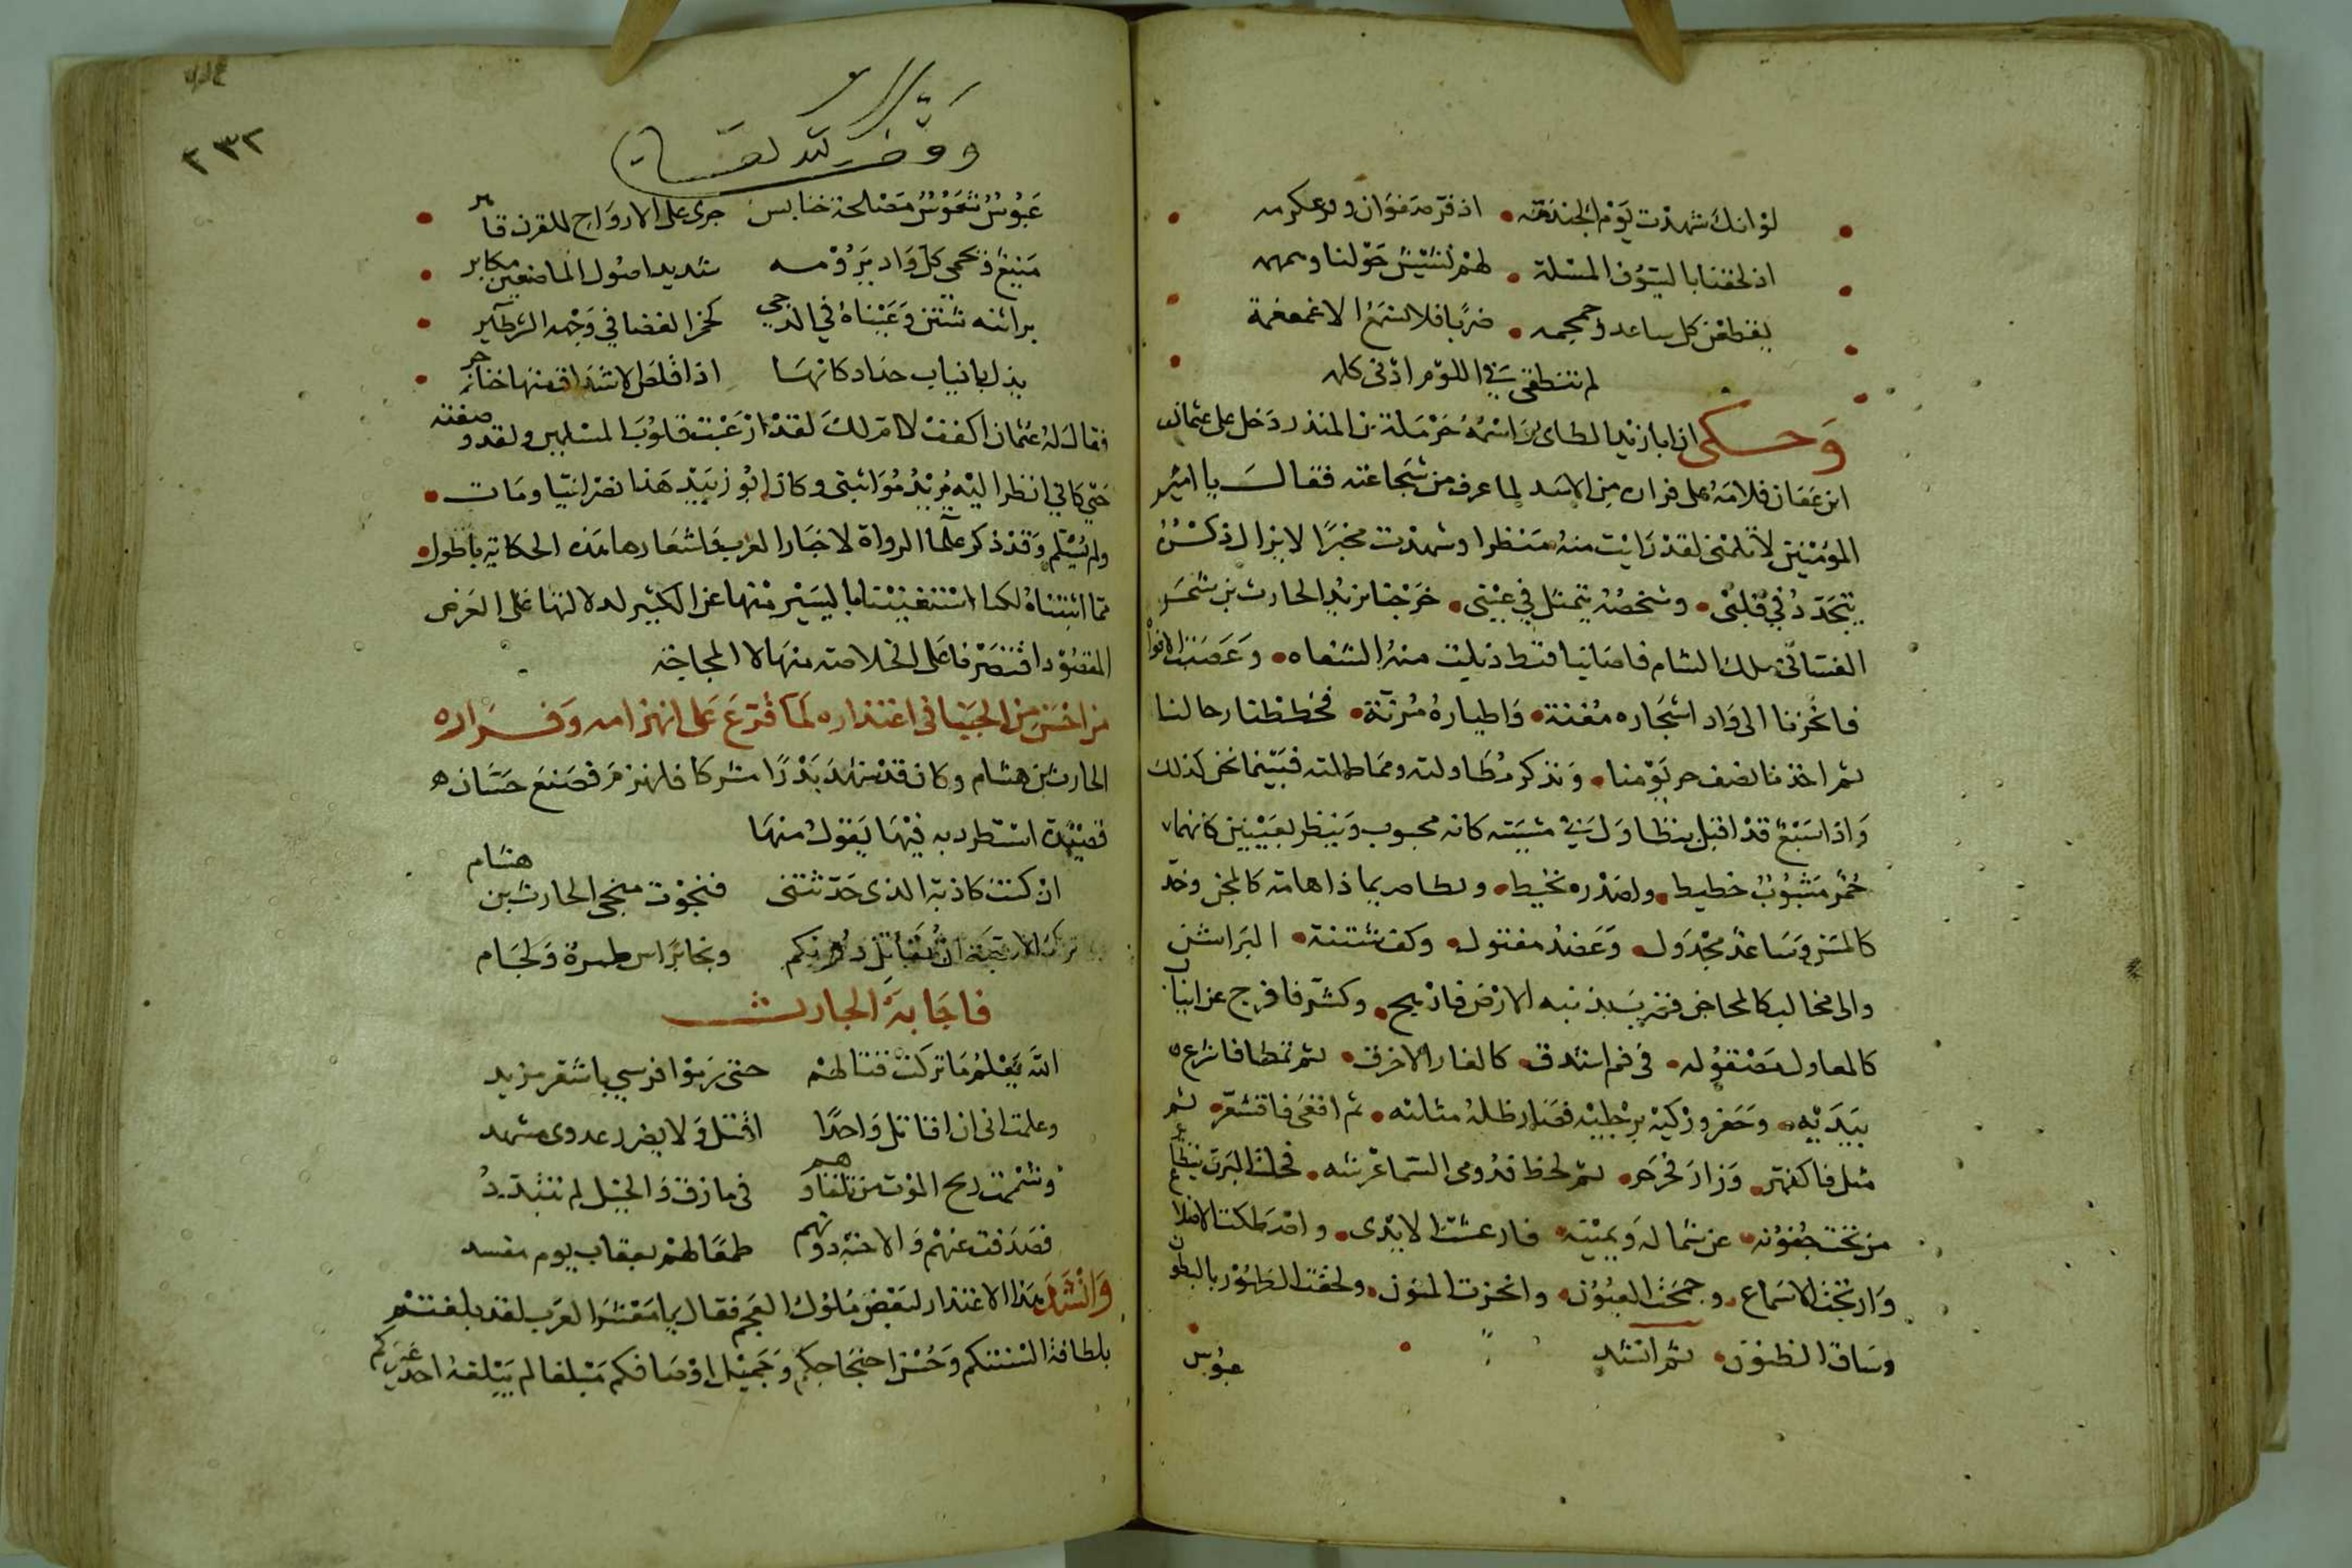 لو انك شهدت يوم الخندمه • اذ فر صفوان وفر عكرمه
اذ لحقتنا بالسيوف المسلمة • لهم نئيش حولنا وهمهمه
يقطعن كل ساعد وجمجمه • ضربا فلا تسمع الا غمغمة
لم تنطقي في اللوم ادنى كلمه
وحكى ان ابا زبيد الطائي واسمه حرملة بن المنذر دخل على عثمان
ابن عفان فلامه على فراره من الاسد لما عرف من شجاعته فقال يا امير
المؤمنين لا تلمني لقد رايت منه منظرا وشهدت مخبرا لا يزال ذكره
يتجدد في قلبي • وشخصه يتمثل في عيني • خرجنا نريد الحارث بن شمر
الغساني ملك الشام فاصابنا قيظ ذبلت منه الشفاه • وعصبت الافواه
فانحزنا الى واد اشجاره مغنة • واطياره مرنة • فحططنا رحالنا
ثم اخذنا نصف حر يومنا • ونذكر مطاولته ومماطلته فبينما نحن كذلك
واذا سبع قد اقبل يتظاول في مشيته كانه مجنوب وينظر بعينين كانهما
جمر مشبوب خطيط • ولصدره نحيط • ولطا مر بما ذا هامة كالمجن وخد
كالمسن وساعد مجدول • وعضد مفتول • وكف شثنة • البراثن
والى مخالب كالمحاجن فضرب بذنبه الارض فارهج • وكشر فافرج عن انياب
كالمعاول مصقوله • في فم اشدق • كالغار الاخرق • ثم تمطا فاسرع
بيديه • وحفز وركيه برجليه فصار ظله مثليه • ثم اقعى فاقشعر • ثم
مثل فاكفهر • وزاد فجرجر • ثم لحظ فذو في السماء عرشه • فخلت البرق يتطاير
من تحت جفونه • عن شماله ويمينه • فارعشت الايدي • واصطكت الاضلاع
وارتجت الاسماع • وجمحت العيون • وانخزت المتون • ولحقت الظهور بالبطون
وساق الظنون • ثم انشد
عبوس
وقف لله تعالى
٢٣٢
عبوس شموس مصلخد خنابس جرى على الارواح للقرن قاهر
منيع ويحمي كل واد يرومه شديد اصول الماضغين مكابر
براثنه شثن وعيناه في الدجى كجمر الغضا في وجهه الشر طائر
يذل بانياب حداد كانها اذا قلص الاشداق عنها خناجر
فقال له عثمان اكفف لا ام لك لقد ارعبت قلوب المسلمين ولقد وصفته
حتى كاني انظر اليه يريد مواثبتي وكان ابو زبيد هذا نصرانيا ومات •
ولم يسلم وقد ذكر علما الرواة لاخبار العرب واشعارها هذه الحكاية باطول •
مما اثبتناه لكنا استغنينا باليسير منها عن الكثير لدلالتها على الغرض
المقصود اقتصرنا على الخلاصة منها لا المجاجة
من احسن من الجبنا في اعتذاره لما قرع على انهزامه وفراره
الحارث بن هشام وكان قد شهد بدرا مشركا فانهزم فصنع حسان
قصيدة استطرد به فيها يقول منها
ان كنت كاذبة الذي حدثتني فنجوت منجى الحارث بن هشام
ترك الاحبة ان يقاتل دونهم ونجا براس طمرة ولجام
فاجابه الحارث
الله يعلم ما تركت قتالهم حتى رموا فرسي باشقر مزبد
وعلمت اني ان اقاتل واحدا اقتل ولا يضرر عدوي مشهد
وشممت ريح الموت من تلقاهم في مازق والخيل لم تتبدد
فصدفت عنهم والاحبة دونهم طمعا لهم بعقاب يوم مفسد
وانشد هذا الاعتذار لبعض ملوك العجم فقال يا معشر العرب لقد بلغتم
بلطافة السنتكم وحسن احتجاجكم وجميل اوصافكم مبلغا لم يبلغه احد غيركم